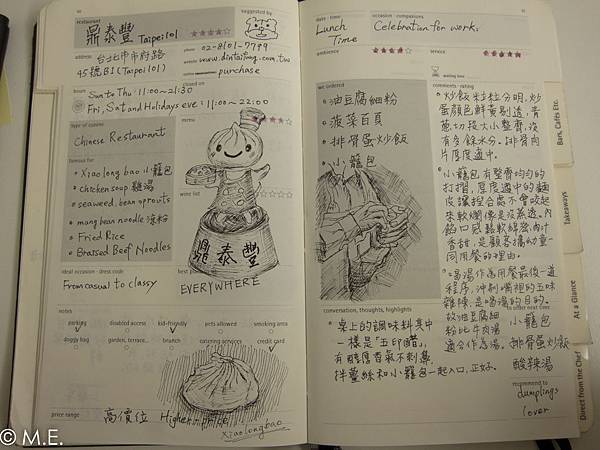 restaurant
鼎泰豐 Taipei101
suggested by
address
台北市市府路
45號B1(Taipei101)
phone 02-8101-7799
website www.dintaifung.com.tw
purchase
hours
closed on
Sun to Thu: 11:00~21:30
Fri, Sat and Holidays eve: 11:00~22:00
type of cuisine
Chinese Restaurant
menu
famous for
Xiao long bao 小籠包
chicken soup 雞湯
seaweed, bean sprouts
mung bean noodle 涼粉
Fried Rice
Braised Beef Noodles
wine list
鼎泰豐
ideal occasion · dress code
From casual to classy
EVERYWHERE
notes
parking
disabled access
kid-friendly
pets allowed
smoking area
doggy bag
garden, terrace...
brunch
catering services
credit card
price range
高價位 Higher-price
Xiaolongbao
date · time
Lunch
Time
occasion · companions
Celebration for work.
ambience
service
waiting time
we ordered
油豆腐細粉
菠菜百頁
排骨蛋炒飯
小籠包
comments · rating
炒飯粒粒分明,炒
蛋顏色鮮黃剔透,青
蔥切段大小整齊,沒
有多餘水分。排骨肉
片厚度適中。
小籠包有整齊均勻的
打摺,厚度適中的麵
皮讓捏合處不會咬起
來軟爛像是沒蒸透。內
餡口感鬆軟綿密,肉汁
香甜,是顧客攜幼童一
同用餐的理由。
喝湯作為用餐最後一道
程序,沖刷嘴裡的五味
雜陳,是喝湯的目的。
故油豆腐細
粉比牛肉湯
適合作為湯。
to order next time
小籠包
排骨蛋炒飯
酸辣湯
recommend to
dumplings
lover
conversation, thoughts, highlights
桌上的調味料其中
一樣是「五印醋」,
有醋厚香氣不刺鼻,
拌薑絲和小籠包一起入口,正好。
Bars, Cafés Etc.
Takeaways
At a Glance
Direct from the Chef
© M.E.